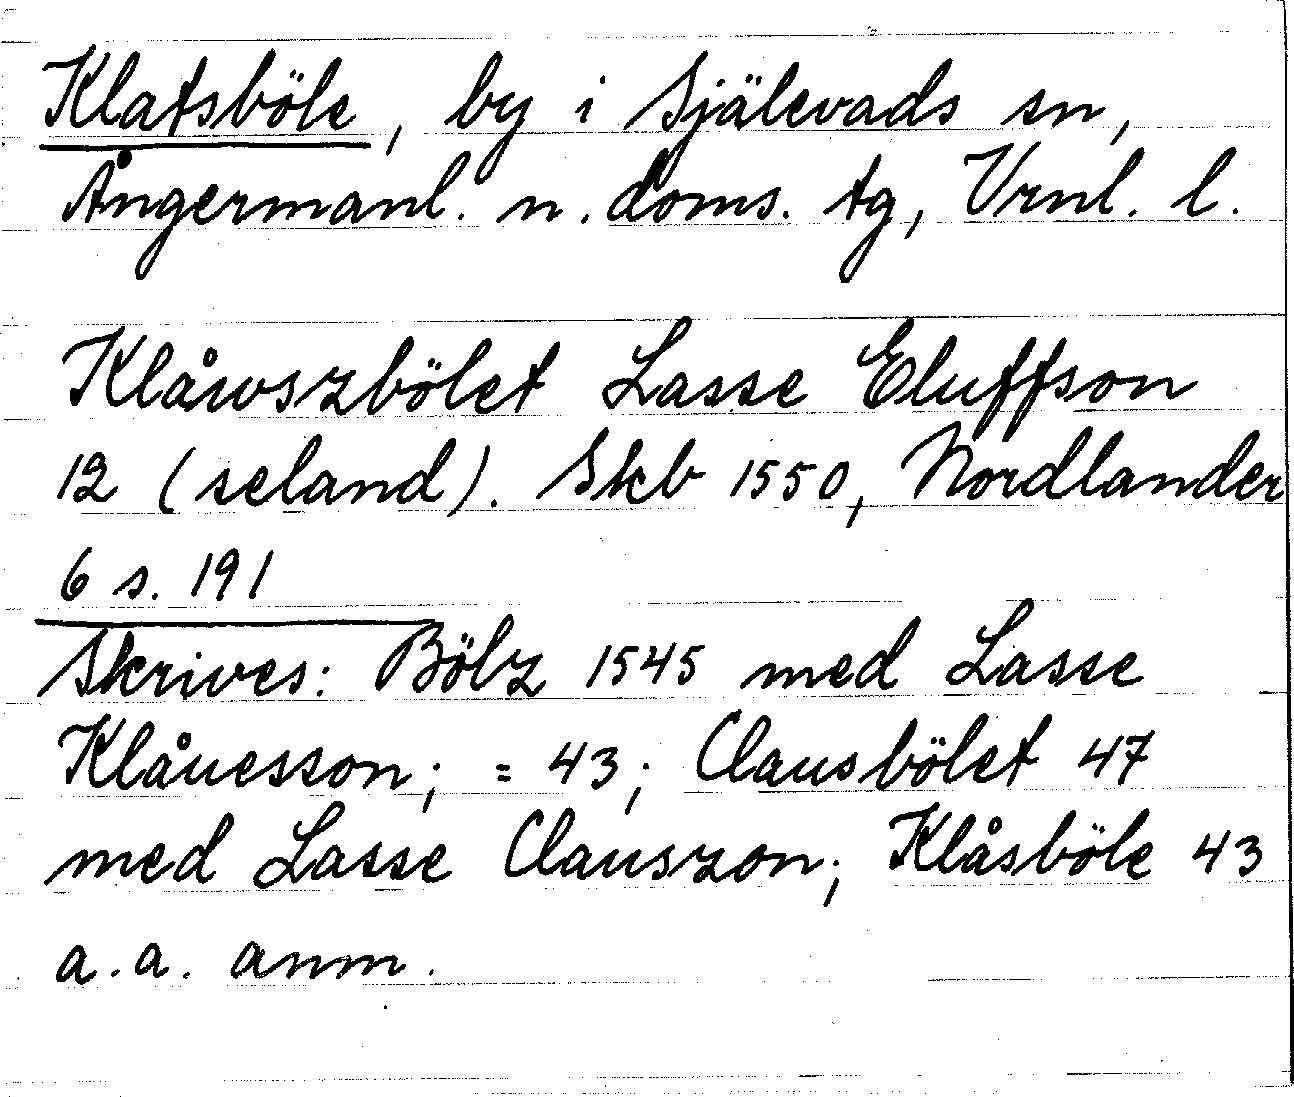 Klatsböle, by i Själevads sn,
Ångermanl. n. doms. tg, Vrnl. l.
Klåwszbölet Lasse Eluffson
12 (seland). Skb 1550, Nordlander
6 s. 191
Skrives: Bölz 1545 med Lasse
Klåuesson; = 43; Clausbölet 47
med Lasse Clauszon; Klåsböle 43
a.a. anm.